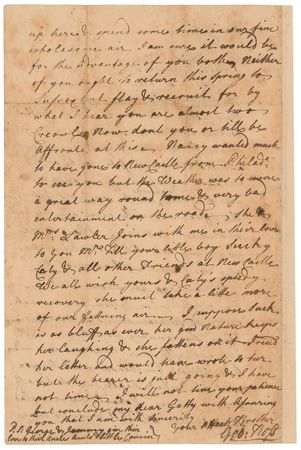 up here & spend some time in our fine
wholesome air. I am sure it would be
for the advantage of you both. Neither
of you ought to return this spring to
Sussex but stay & recruit for by
what I hear you are almost two
Now dont you or till be
affronted at this Nancy wanted much
to have gone to New Castle from Philada
to see you but the Weather was so
a great way round some & very bad
entertainment on the road. She &
Mrs Lawler Joins with me in their love
to You Mr Till your little boy
Caty & all other Friends at New Castle
We all wish yours & Caty's speedy
recovery she must take a little more
of our fattning air. I suppose Suck
is as bluff as ever her good Nature keeps
her laughing & she fattens on it I recd
her letter and would have wrote to her
but the bearer is just going & I have
not time I will not tire your patience
but conclude my dear Getty with assuring
you that I am with sincerity
your affect Brother
Geo: Ross
P.S. George & Jammey join their
love to their Uncles Aunts & Cousin